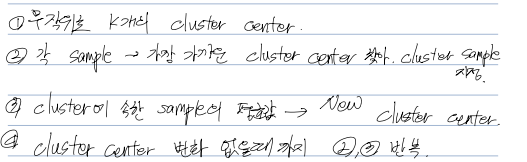 ① 무작위로 K개의 cluster center.
② 각 sample → 가장 가까운 cluster center 찾아. cluster sample
지정.
③ cluster에 속한 sample의 평균값 → New cluster center.
④ cluster center 변화 없을때 까지 ②,③ 반복.